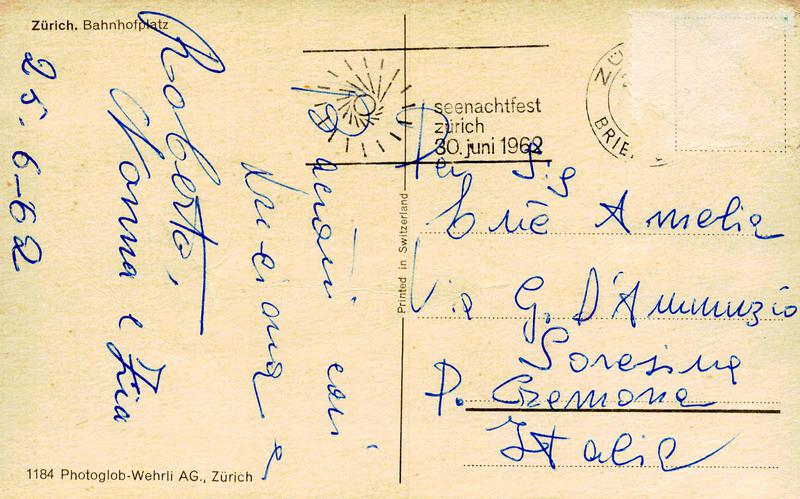 Zürich. Bahnhofplatz
25-6-62
Roberto,
Nonna e Zia
Luciana e
Bacioni cari
seenachtfest
zürich
30. juni 1962
ZÜ
BRIE
Per Sig
Amelia
Via G. D'Annunzio
Soresina
P. Cremona
Italia
Printed in Switzerland
1184 Photoglob-Wehrli AG., Zürich